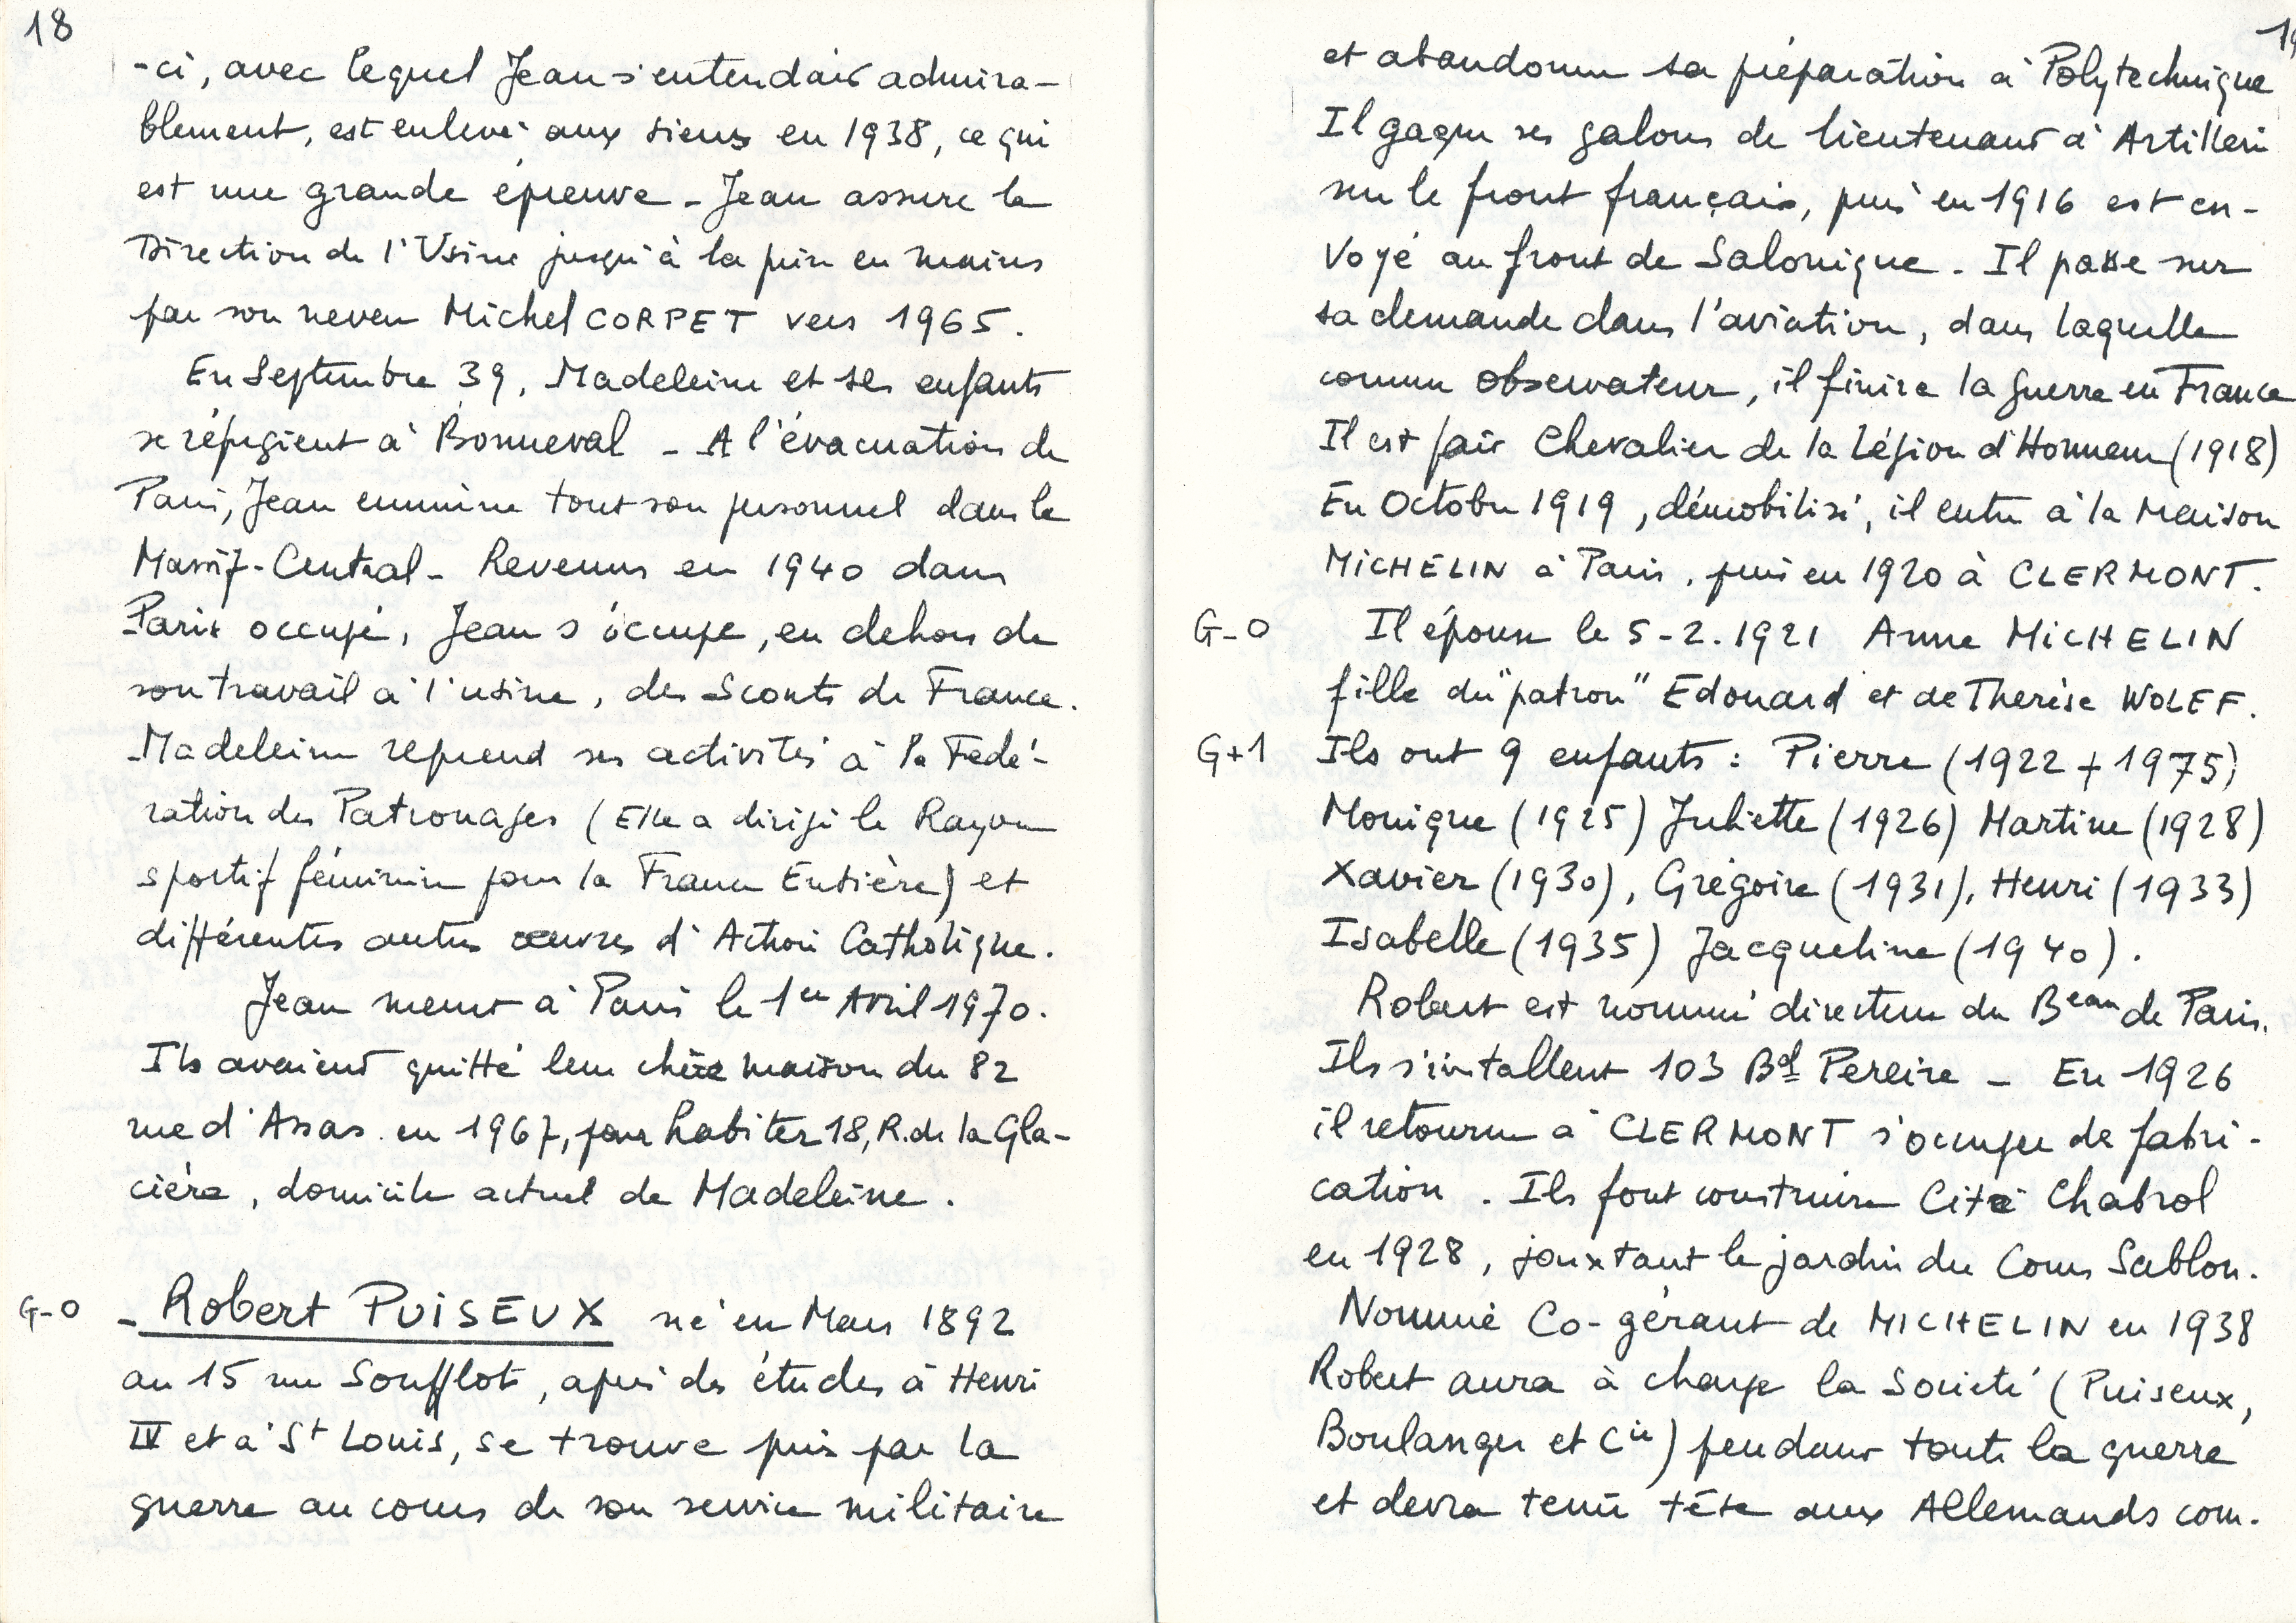 18
-ci, avec lequel Jean s'entendait admira-
blement, est enlevé aux siens en 1938, ce qui
est une grande épreuve - Jean assure la
Direction de l'Usine jusqu'à la prise en mains
par son neveu Michel CORPET vers 1965.
En Septembre 39, Madeleine et ses enfants
se réfugient à Bonneval - A l'évacuation de
Paris, Jean emmène tout son personnel dans le
Massif-Central - Revenus en 1940 dans
Paris occupé, Jean s'occupe, en dehors de
son travail à l'usine, des Scouts de France.
Madeleine reprend ses activités à la Fedé-
ration des Patronages (Elle a dirigé le Rayon
sportif féminin pour la France Entière) et
différentes autres œuvres d'Action Catholique.
Jean meurt à Paris le 1er Avril 1970.
Ils avaient quitté leur chère maison du 82
rue d'Assas en 1967, pour habiter 18, R. de la Gla-
cière, domicile actuel de Madeleine.
G-0 - Robert PUISEUX né en Mars 1892
au 15 rue Soufflot, après des études à Henri
IV et à St Louis, se trouve pris par la
guerre au cours de son service militaire
et abandonne sa préparation à Polytechnique
Il gagne ses galons de lieutenant d'Artillerie
sur le front français, puis en 1916 est en-
voyé au front de Salonique. Il passe sur
sa demande dans l'aviation, dans laquelle
comme observateur, il finira la guerre en France
Il est fait Chevalier de la Légion d'Honneur (1918)
En Octobre 1919, démobilisé, il entre à la Maison
MICHELIN à Paris, puis en 1920 à CLERMONT.
G-0 Il épouse le 5-2.1921 Anne MICHELIN
fille du "patron" Edouard et de Therèse WOLFF.
G+1 Ils ont 9 enfants : Pierre (1922 + 1975)
Monique (1925) Juliette (1926) Martine (1928)
Xavier (1930), Grégoire (1931), Henri (1933)
Isabelle (1935) Jacqueline (1940).
Robert est nommé directeur du Beau de Paris.
Ils s'intallent 103 Bd Pereire - En 1926
il retourne à CLERMONT s'occuper de fabri-
cation. Ils font construire Cité Chabrol
en 1928, jouxtant le jardin du Cours Sablon.
Nommé Co-gérant de MICHELIN en 1938
Robert aura à charge la Société (Puiseux,
Boulanger et Cie) pendant toute la guerre
et devra tenir tête aux Allemands com-